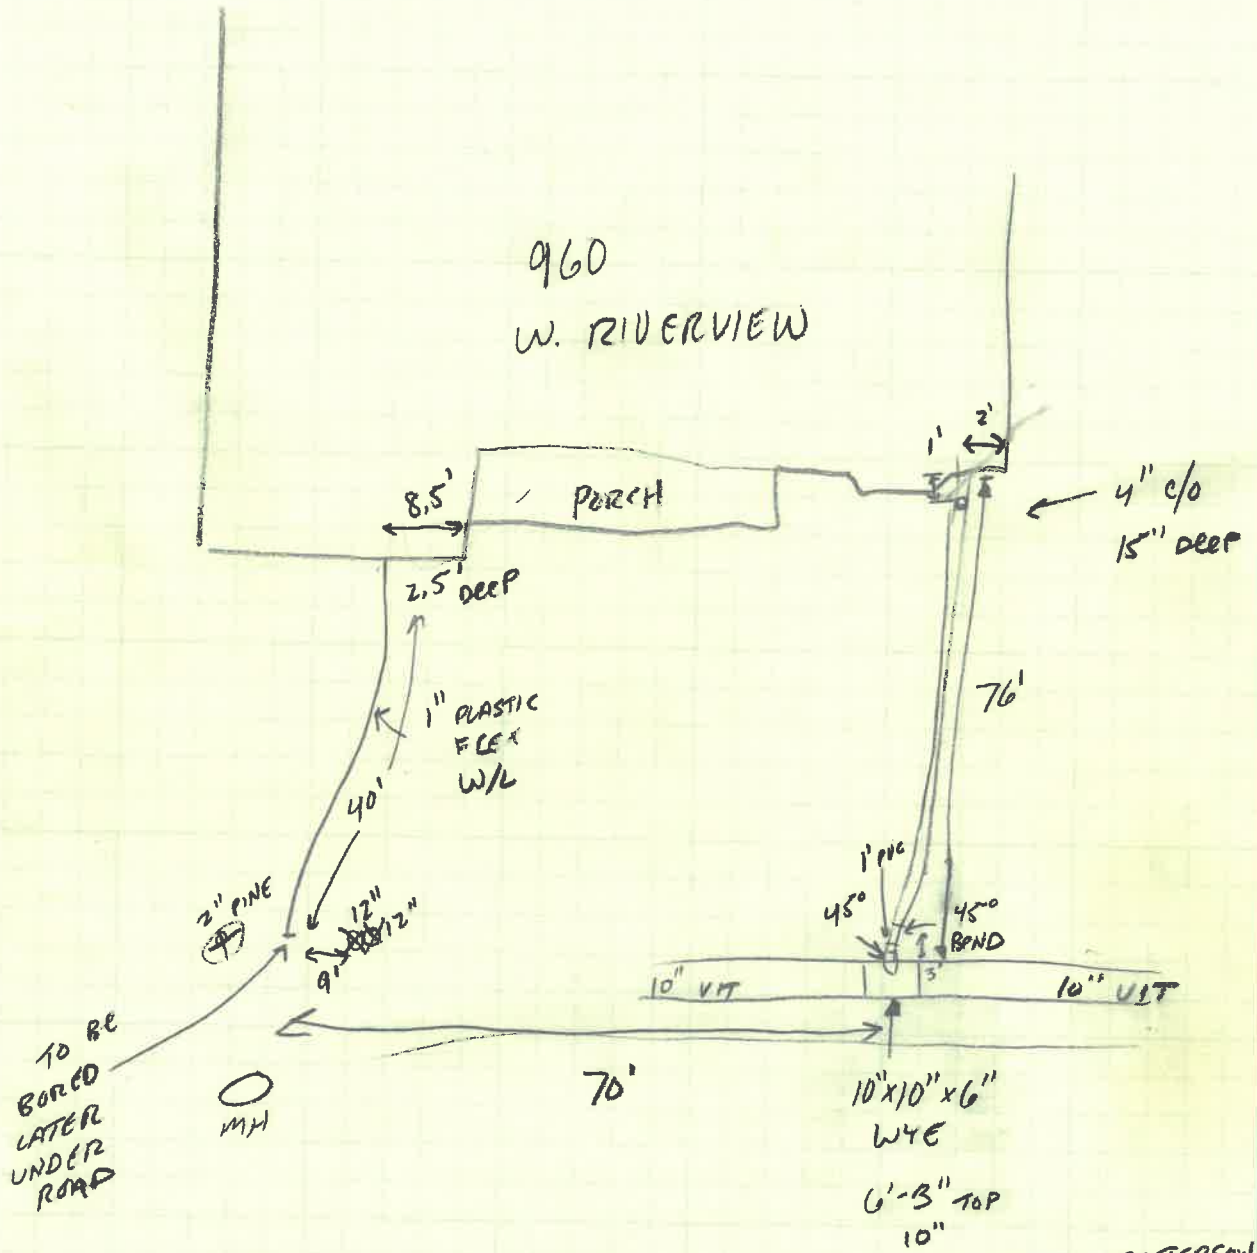 960
W. RIVERVIEW
1'
2'
8.5'
PORCH
4" C/O
15" DEEP
2.5' DEEP
1" PLASTIC
FLEX
W/L
76'
40'
2" PINE
12"
12"
9'
1' PVC
45°
45°
BEND
3'
10" VIT
10" VIT
TO BE
BORED
LATER
UNDER
ROAD
MH
70'
10"x10"x6"
WYE
6'-3" TOP
10"